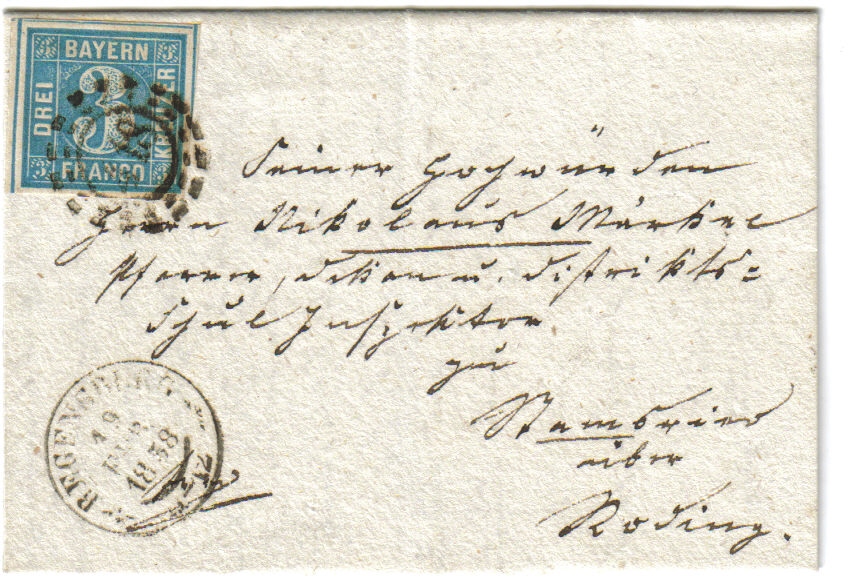 BAYERN
DREI
3
KREUZER
FRANCO
Seiner Hochwürden
Herrn Nikolaus Märkel
Pfarrer, Dekan u. Distrikts=
Schul Inspektor
zu
Stamsried
über
Roding.
REGENSBURG
19
FEB
1858